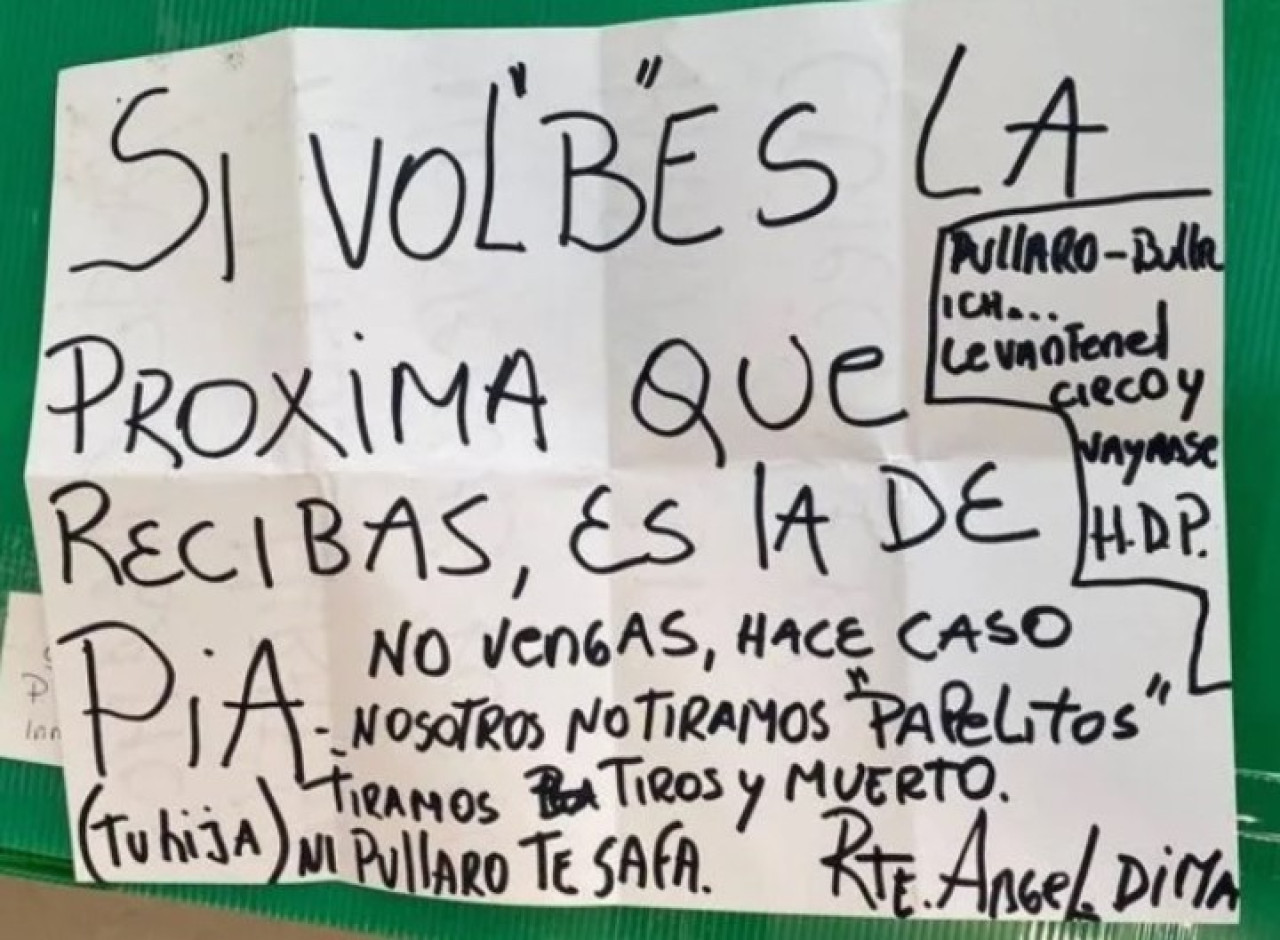 SI VOL"B"ES LA
PROXIMA QUE
RECIBAS, ES LA DE
PIA
(TU hijA)
NO VENGAS, HACE CASO
-NOSOTROS NO TIRAMOS "PAPELITOS"
TIRAMOS TIROS Y MUERTO.
NI PULLARO TE SAFA.
RTE. ANGEL. DIMA
PULLARO-Bullr
ICH...
LevanTenel
CIRCO Y
VAYANSE
H.D.P.